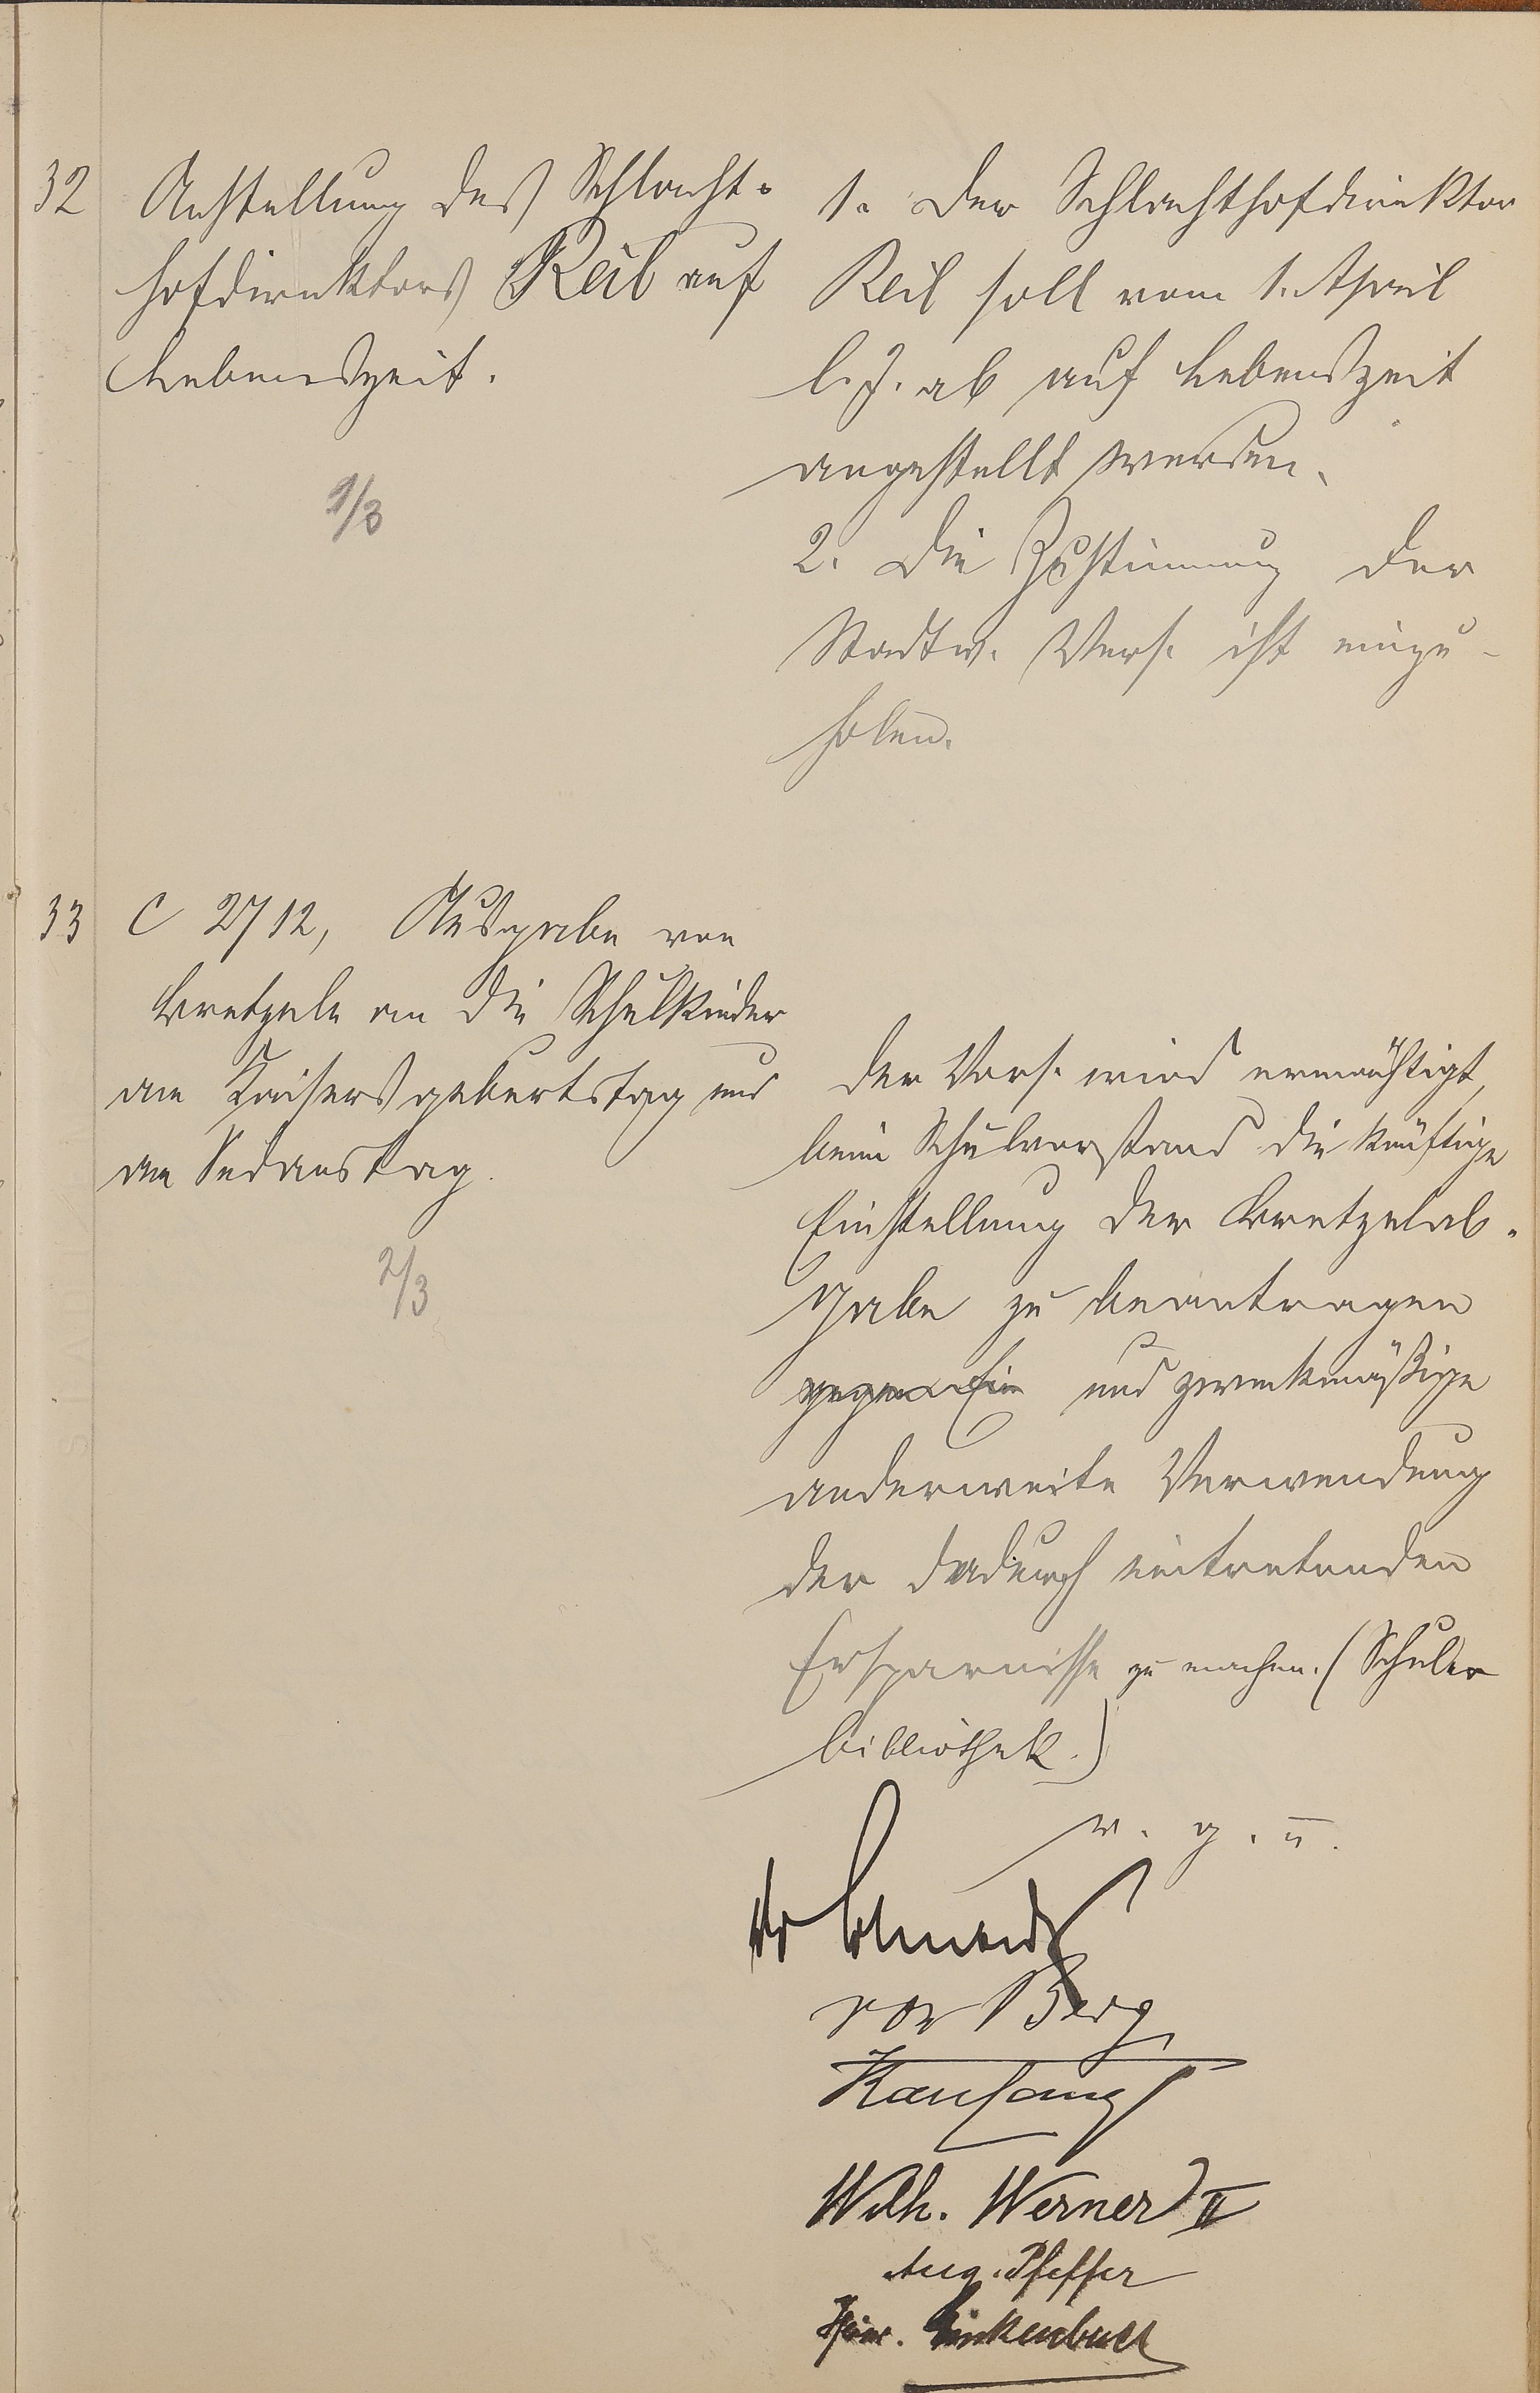 32
Anstellung des Schlacht-
hofdirektors Keil auf
Lebenszeit.
9/3
1. Der Schlachthofdirektor
Keil soll vom 1. April
l. J. ab auf Lebenszeit
angestellt werden.
2. Die Zustimmung der
Stadtv. Vers. ist einzu-
holen.
33
C 2712, Ausgabe von
Bretzeln an die Schulkinder
an Kaisersgeburtstag und
an Sedanstag.
2/3
Der Vors. wird ermächtigt,
beim Schulvorstand die künftige
Einstellung der Bretzelab-
gabe zu beantragen
gegen Ein und zweckmäßige
anderweite Verwendung
der dadurch eintretenden
Ersparnisse zu machen. (Schüler
bibliothek.)
v. g. u.
Dr
von Berg
Wilh. Werner II
Aug. Pfeffer